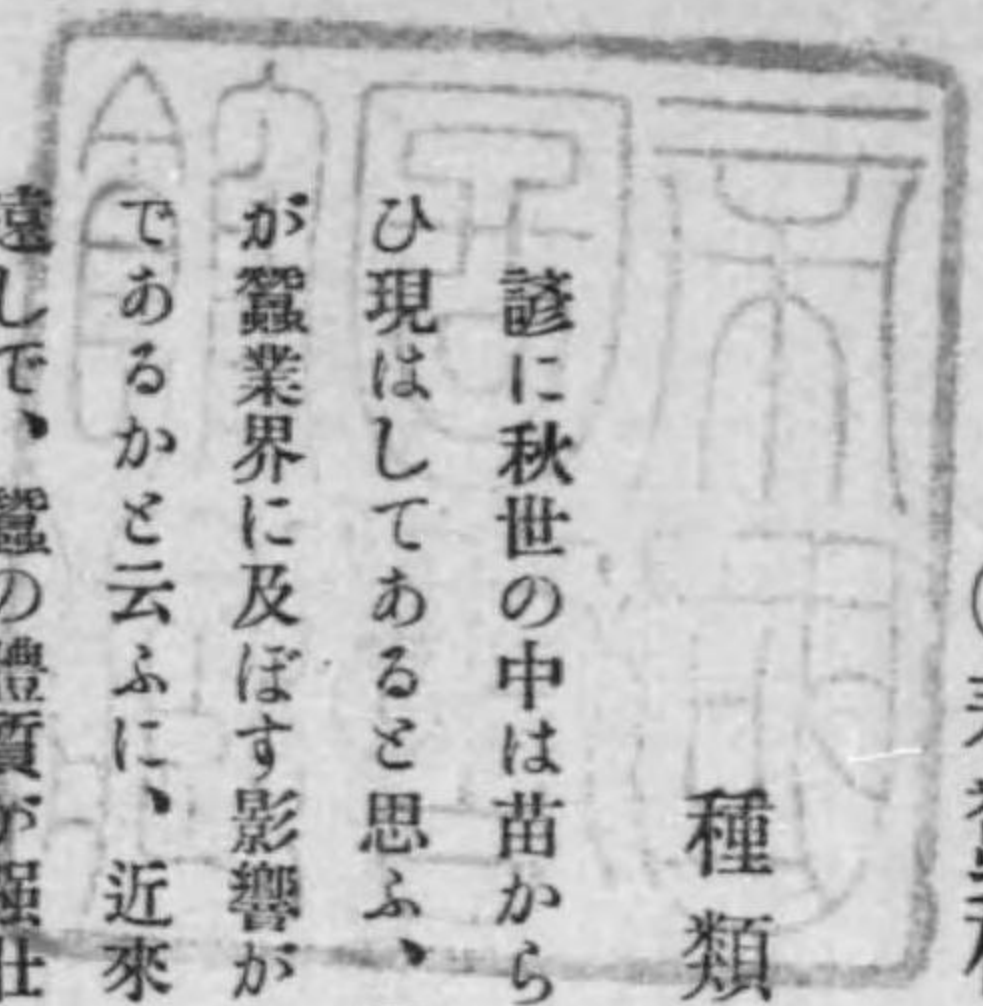 種類
諺に秋世の中は苗から
ひ現はしてあると思ふ、
が蠶業界に及ぼす影響が
であるかと云ふに、近來
遠しで、蠶の體質が强壯